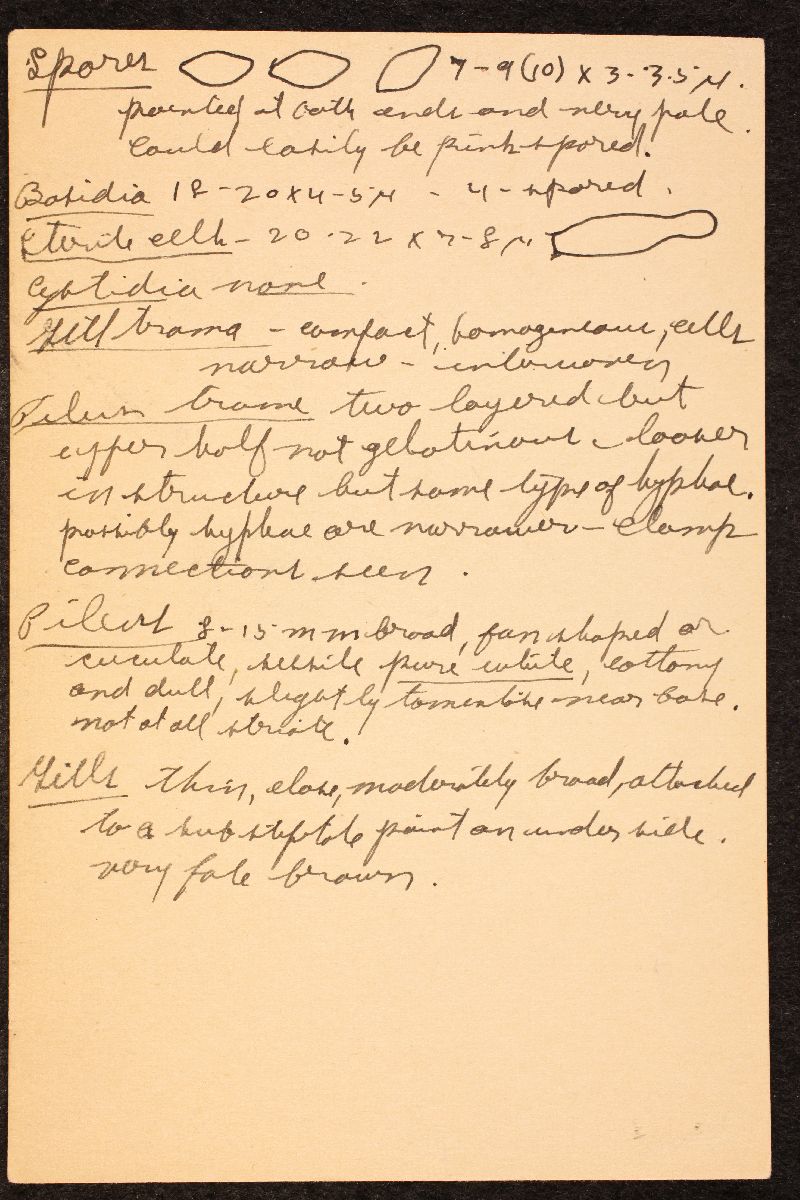 Spores 7-9(10) x 3-3.5 µ.
pointed at both ends and very pale.
Could easily be pink-spored.
Basidia 18-20x4-5µ - 4-spored.
Sterile cells - 20-22 x 7-8 µ
Cystidia none.
Gill trama - compact, homogeneous, cells
narrow - interwoven
Pileus trama two layered but
upper half not gelatinous - looser
in structure but same type of hyphae.
possibly hyphae are narrower - Clamp
connections seen.
Pileus 8-15 mm broad, fan shaped or
cuculate, sessile pure white, cottony
and dull, slightly tomentose near base.
not at all striate.
Gills thin, close, moderately broad, attached
to a substipitate point on under side.
very pale brown.